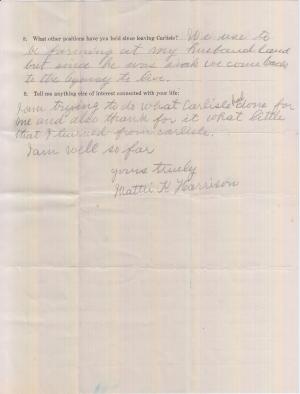 8. What other positions have you held since leaving Carlisle? We use to
be farming at my husband land
but since he was sick we come back
to the to live.
9. Tell me anything else of interest connected with your life:
I am trying to do what Carlisle had done for
me and also thank for it what little
that I learned from carlisle.
I am well so far
yours truely
Mattie K Harrison